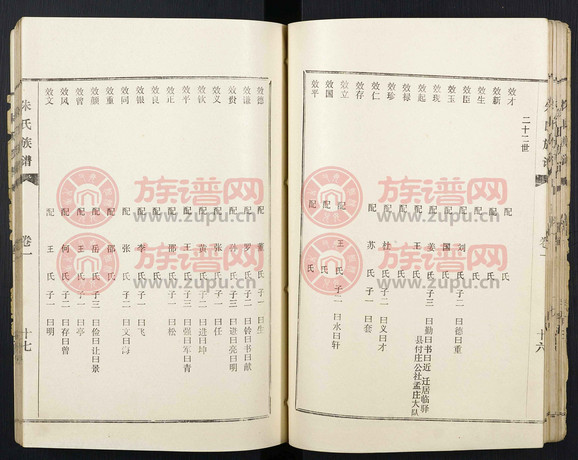 朱氏族谱
卷一
十六
二十二世
效才 配 氏
效新 配 氏
效生 配 氏
效臣 配 刘氏 子二 曰德曰重
效玉 配 国氏
效玫 配 姜氏 子三 曰勤曰书曰近 迁居临驿
县付庄公社孟庄大队
效起 配 王氏
效禄 配 杜氏 子二 曰义曰才
效珍
效仁 配 苏氏 子一 曰套
效存
效立 配 王氏 子二 曰水曰轩
效国 配 氏
效平
效德 配 董氏 子一 曰生
效谦 配 罗氏 子二 曰铃曰书曰献
效贵 配 孙氏 子三 曰进曰亮曰明
效义 配 张氏 子一 曰任
效钦 配 黄氏 子二 曰进曰坤
效平 配 王氏 子三 曰强曰军曰青
效正 配 邵氏 子一 曰松
效良
效银 配 李氏 子一 曰飞
效同 配 张氏 子二 曰文曰海
效重 配 邵氏
效颜 配 岳氏 子三 曰俭曰让曰景
效曾 配 王氏 子一 曰亭
效风 配 何氏 子二 曰存曰曾
效文 配 王氏 子一 曰明
朱氏族谱
卷一
十七
族谱网
www.zupu.cn
族谱网
www.zupu.cn
族谱网
www.zupu.cn
族谱网
www.zupu.cn